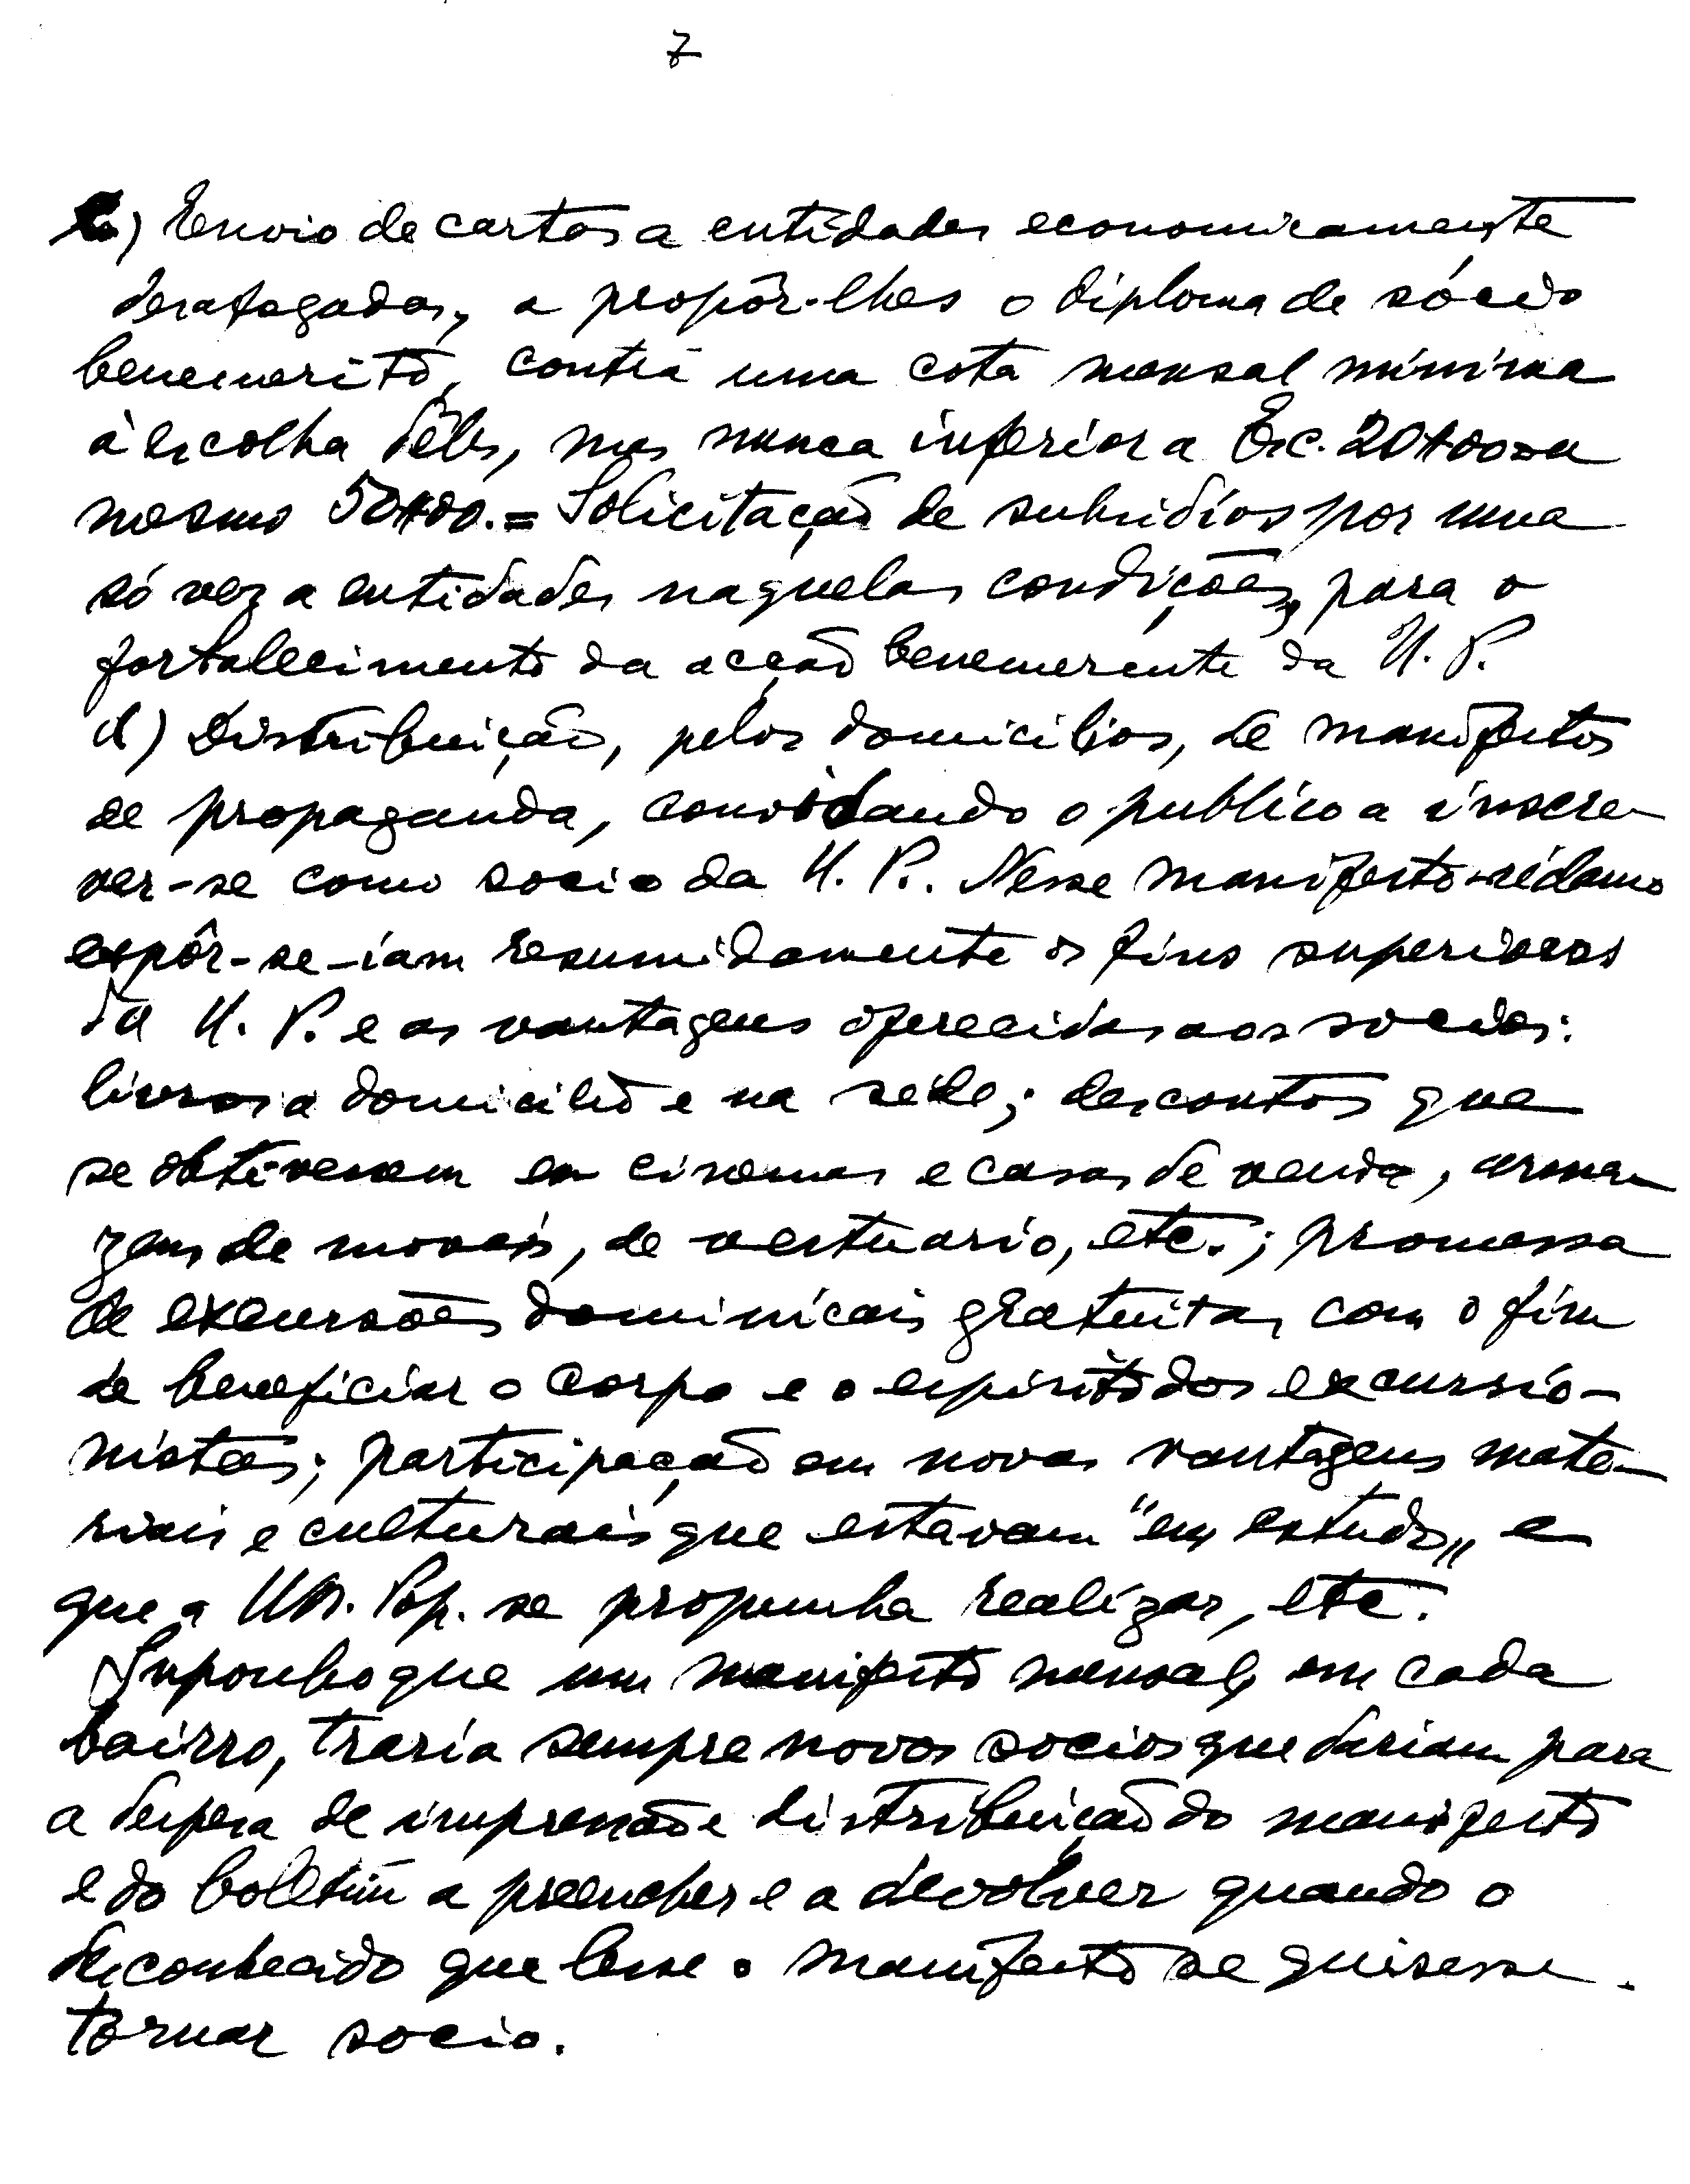 7
c) Envio de cartas a entidades economicamente
desafogadas, a propôr-lhes o diploma de sócio
benemerito, contra uma cota mensal minima
à escolha dêles, mas nunca inferior a Esc. 20$00 ou
mesmo 50$00. = Solicitação de subsidios por uma
só vez a entidades naquelas condições, para o
fortalecimento da acção benemerente da U. P.
d) Distribuição, pelos domicilios, de manifestos
de propaganda, convidando o publico a inscre-
ver-se como socio da U. P.. Nesse manifesto-réclamo
expôr-se-iam resumidamente os fins superiores
da U. P. e as vantagens oferecidas aos socios:
livros a domicilio e na séde; descontos que
se obtivessem em cinemas e casas de venda, arma-
zens de moveis, de vestuario, etc.; promessa
de excursões dominicais gratuitas, com o fim
de beneficiar o corpo e o espirito dos excursio-
nistas; participação em novas vantagens mate-
riais e culturais que estavam "em estudo„ e
que a Un. Pop. se propunha realizar, etc.
Suponho que um manifesto mensal, em cada
bairro, traria sempre novos socios que dariam para
a despesa de impressão e distribuição do manifesto
e do boletim a preencher e a devolver quando o
desconhecido que lesse o manifesto se quisesse
tornar socio.